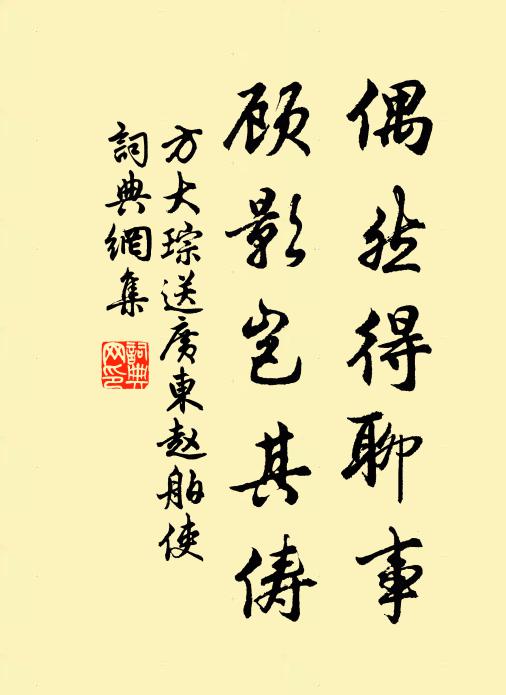 偶然得聊事
顾影岂其俦
方大琮送廣東赵舶使
詞典網集
詞典網印